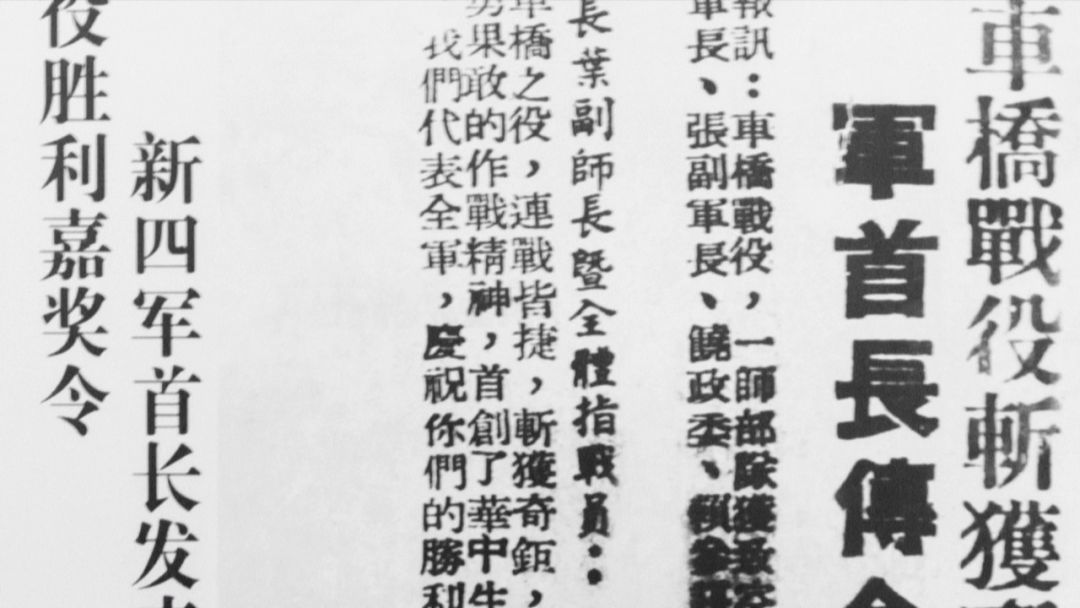 車橋戰役斬獲
軍首長傳令
報訊：車橋戰役，一師部隊獲致
軍長、張副軍長、饒政委、賴參
長葉副師長暨全體指戰員：
車橋之役，連戰皆捷，斬獲奇鉅，
勇果敢的作戰精神，首創了華中生
我們代表全軍，慶祝你們的勝利
新四军首长发
役胜利嘉奖令